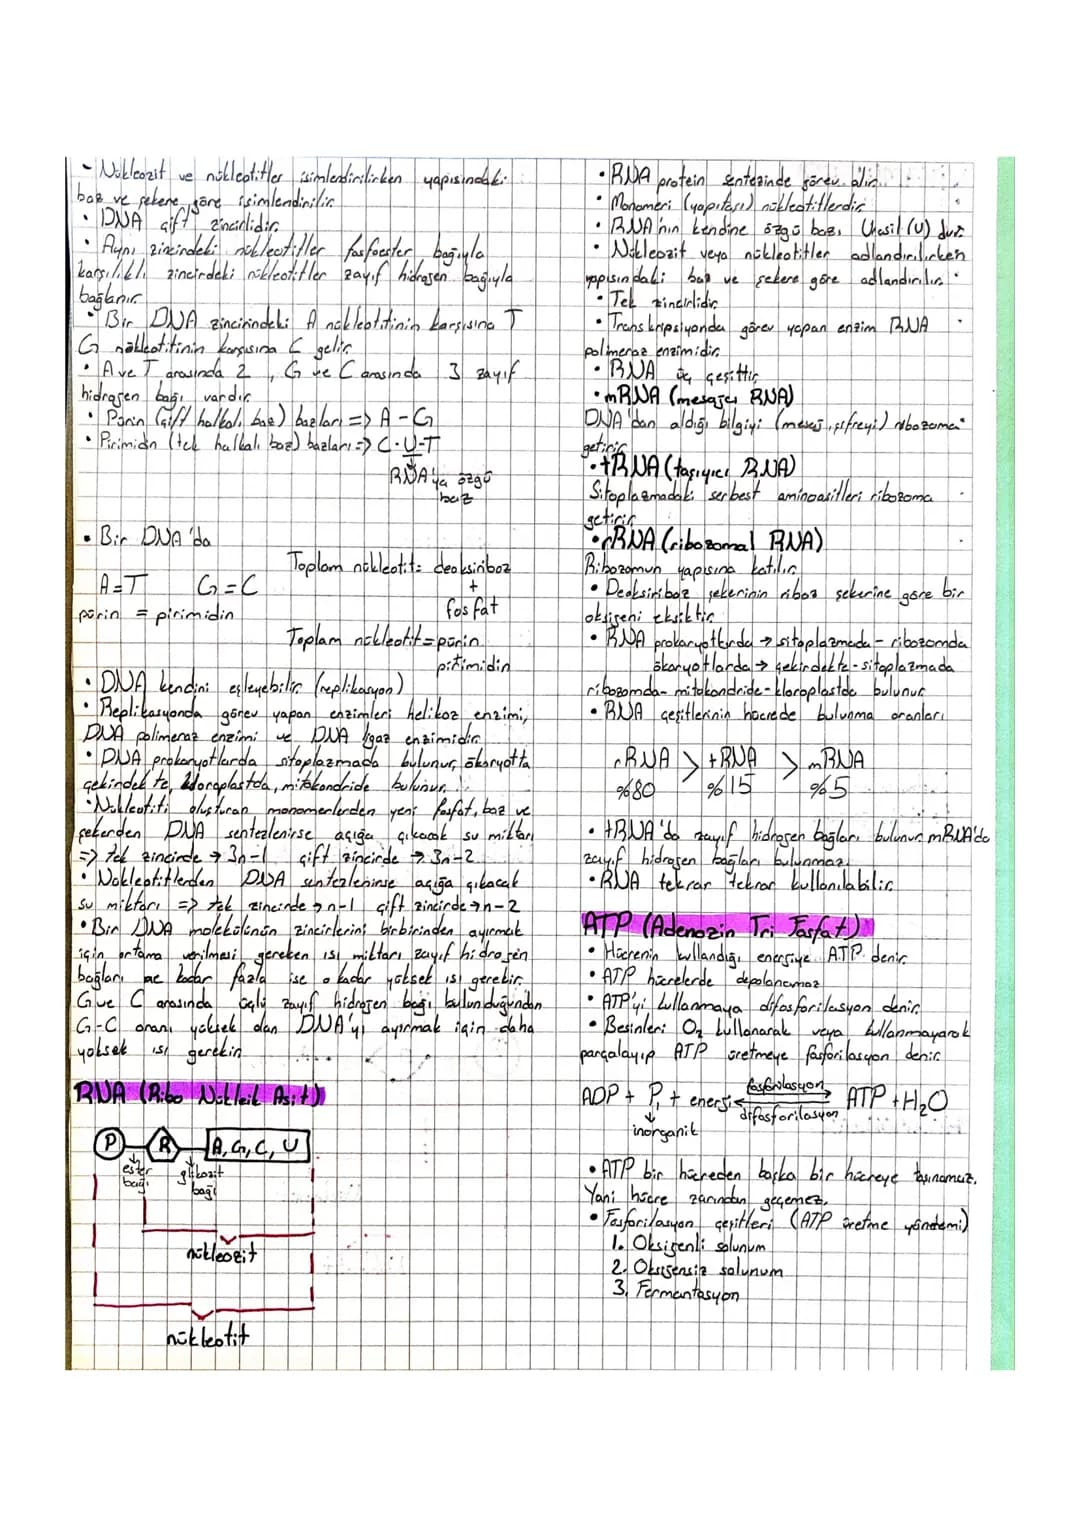 - Nükleozit ve nükleotitler isimlendirilirken yapısındaki
baz ve şekere göre isimlendirilir.
• DNA çift zincirlidir.
• Aynı zincirdeki nükleotitler fosfoester bağıyla
karşılıklı zincirdeki nükleotitler zayıf hidrojen bağıyla
bağlanır.
• Bir DNA zincirindeki A nükleotitinin karşısına T
G nükleotitinin karşısına C gelir.
• A ve T arasında 2, G ve C arasında 3 zayıf
hidrojen bağı vardır.
• Pürin (çift halkalı baz) bazları => A-G
• Pirimidin (tek halkalı baz) bazları => C-U-T
RNA'ya özgü
baz
• Bir DNA'da
Toplam nükleotit= deoksiriboz
A=T G=C
+
fosfat
pürin = pirimidin
Toplam nükleotit=pürin
pirimidin
• DNA kendini eşleyebilir (replikasyon)
• Replikasyonda görev yapan enzimleri helikaz enzimi,
DNA polimeraz enzimi ve DNA ligaz enzimidir.
• DNA prokaryotlarda sitoplazmada bulunur, ökaryotta
çekirdekte, kloroplastda, mitokondride bulunur.
• Nükleotiti oluşturan monomerlerden yeni fosfat, baz ve
şekerden DNA sentezlenirse açığa çıkacak su miktarı
=> tek zincirde → 3n-1 çift zincirde → 3n-2
• Nükleotitlerden DNA sentezlenirse açığa çıkacak
su miktarı => tek zincirde → n-1 çift zincirde → n-2
• Bir DNA molekülünün zincirlerini birbirinden ayırmak
için ortama verilmesi gereken ısı miktarı zayıf hidrojen
bağları ne kadar fazla ise o kadar yüksek ısı gerekir.
G ve C arasında üçlü zayıf hidrojen bağı bulunduğundan
G-C oranı yüksek olan DNA'yı ayırmak için daha
yüksek ısı gerekir.
RNA (Ribo Nükleik Asit)
P R A, G, C, U
ester bağı
glikozit bağı
nükleozit
nükleotit
• RNA protein sentezinde görev alır.
• Monomeri (yapıtaşı) nükleotitlerdir.
• RNA'nın kendine özgü bazı Urasil (U) dur.
• Nükleozit veya nükleotitler adlandırılırken
yapısındaki baz ve şekere göre adlandırılır.
• Tek zincirlidir.
• Transkripsiyonda görev yapan enzim RNA
polimeraz enzimidir.
• RNA üç çeşittir.
• mRNA (mesajcı RNA)
DNA'dan aldığı bilgiyi (mesaj, şifreyi) ribozoma
getirir.
• tRNA (taşıyıcı RNA)
Sitoplazmadaki serbest aminoasitleri ribozoma
getirir.
• rRNA (ribozomal RNA)
Ribozomun yapısına katılır.
• Deoksiriboz şekerinin riboz şekerine göre bir
oksijeni eksiktir.
• RNA prokaryotlarda → sitoplazmada - ribozomda
ökaryotlarda → çekirdekte - sitoplazmada
ribozomda - mitokondride - kloroplastda bulunur.
• RNA çeşitlerinin hücrede bulunma oranları
rRNA > tRNA > mRNA
%80 %15 %5
• tRNA'da zayıf hidrojen bağları bulunur mRNA'da
zayıf hidrojen bağları bulunmaz.
• RNA tekrar tekrar kullanılabilir.
ATP (Adenozin Tri Fosfat)
• Hücrenin kullandığı enerjiye ATP denir.
• ATP hücrelerde depolanamaz
• ATP'yi kullanmaya difosforilasyon denir.
• Besinleri O₂ kullanarak veya kullanmayarak
parçalayıp ATP üretmeye fosforilasyon denir.
ADP + Pᵢ + enerji ⇌ ATP + H₂O
fosforilasyon
difosforilasyon
inorganik
• ATP bir hücreden başka bir hücreye taşınamaz.
Yani hücre zarından geçemez.
• Fosforilasyon çeşitleri (ATP üretme yöntemi)
1. Oksijenli solunum
2. Oksijensiz solunum
3. Fermantasyon